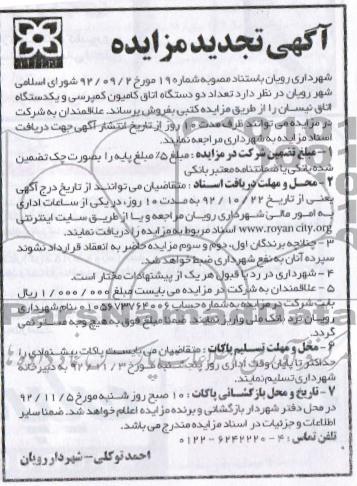 آگهی تجدید مزایده
شهرداری رویان باستناد مصوبه شماره ۱۹ مورخ ۹۲/۰۹/۲ شورای اسلامی
شهر رویان در نظر دارد تعداد دو دستگاه اتاق کامیون کمپرسی و یکدستگاه
اتاق نیسان را از طریق مزایده کتبی بفروش برساند. علاقمندان به شرکت
در مزایده می توانند ظرف مدت ۱۰ روز از تاریخ انتشار آگهی جهت دریافت
اسناد مزایده به شهرداری مراجعه نمایند.
۱- مبلغ تضمین شرکت در مزایده : مبلغ ۵٪ مبلغ پایه را بصورت چک تضمین
شده بانکی یا ضمانتنامه معتبر بانکی
۲- محل و مهلت دریافت اسناد : متقاضیان می توانند از تاریخ درج آگهی
یعنی از تاریخ ۹۲/۱۰/۲۲ به مدت ۱۰ روز، در یکی از ساعات اداری
به امور مالی شهرداری رویان مراجعه و یا از طریق سایت اینترنتی
www.royan city.org اسناد مربوط به مزایده را دریافت نمایند.
۳- چنانچه برندگان اول، دوم و سوم مزایده حاضر به انعقاد قرارداد نشوند
سپرده آنان به نفع شهرداری ضبط خواهد شد.
۴- شهرداری در رد یا قبول هر یک از پیشنهادات مختار است.
۵- علاقمندان به شرکت در مزایده می بایست مبلغ ۱/۰۰۰/۰۰۰ ریال
بابت شرکت در مزایده به شماره حساب ۰۱۰۵۶۷۳۷۶۴۰۰۶ بنام شهرداری
رویان نزد بانک ملی واریز نمایند. ضمنا مبلغ فوق به هیچ وجه مسترد نمی
گردد.
۶- محل و مهلت تسلیم پاکات : متقاضیان می بایست پاکات پیشنهادی را
حداکثر تا پایان وقت اداری روز پنجشنبه مورخ ۹۲/۱۱/۳ به دبیرخانه
شهرداری تسلیم نمایند.
۷- تاریخ و محل بازگشائی پاکات : ۱۰ صبح روز شنبه مورخ ۹۲/۱۱/۵
در محل دفتر شهردار بازگشائی و برنده مزایده اعلام خواهد شد. ضمنا سایر
اطلاعات و جزئیات در اسناد مزایده مندرج می باشد.
تلفن تماس : ۴-۶۲۴۲۲۲۰-۰۱۲۲
احمد توکلی- شهردار رویان